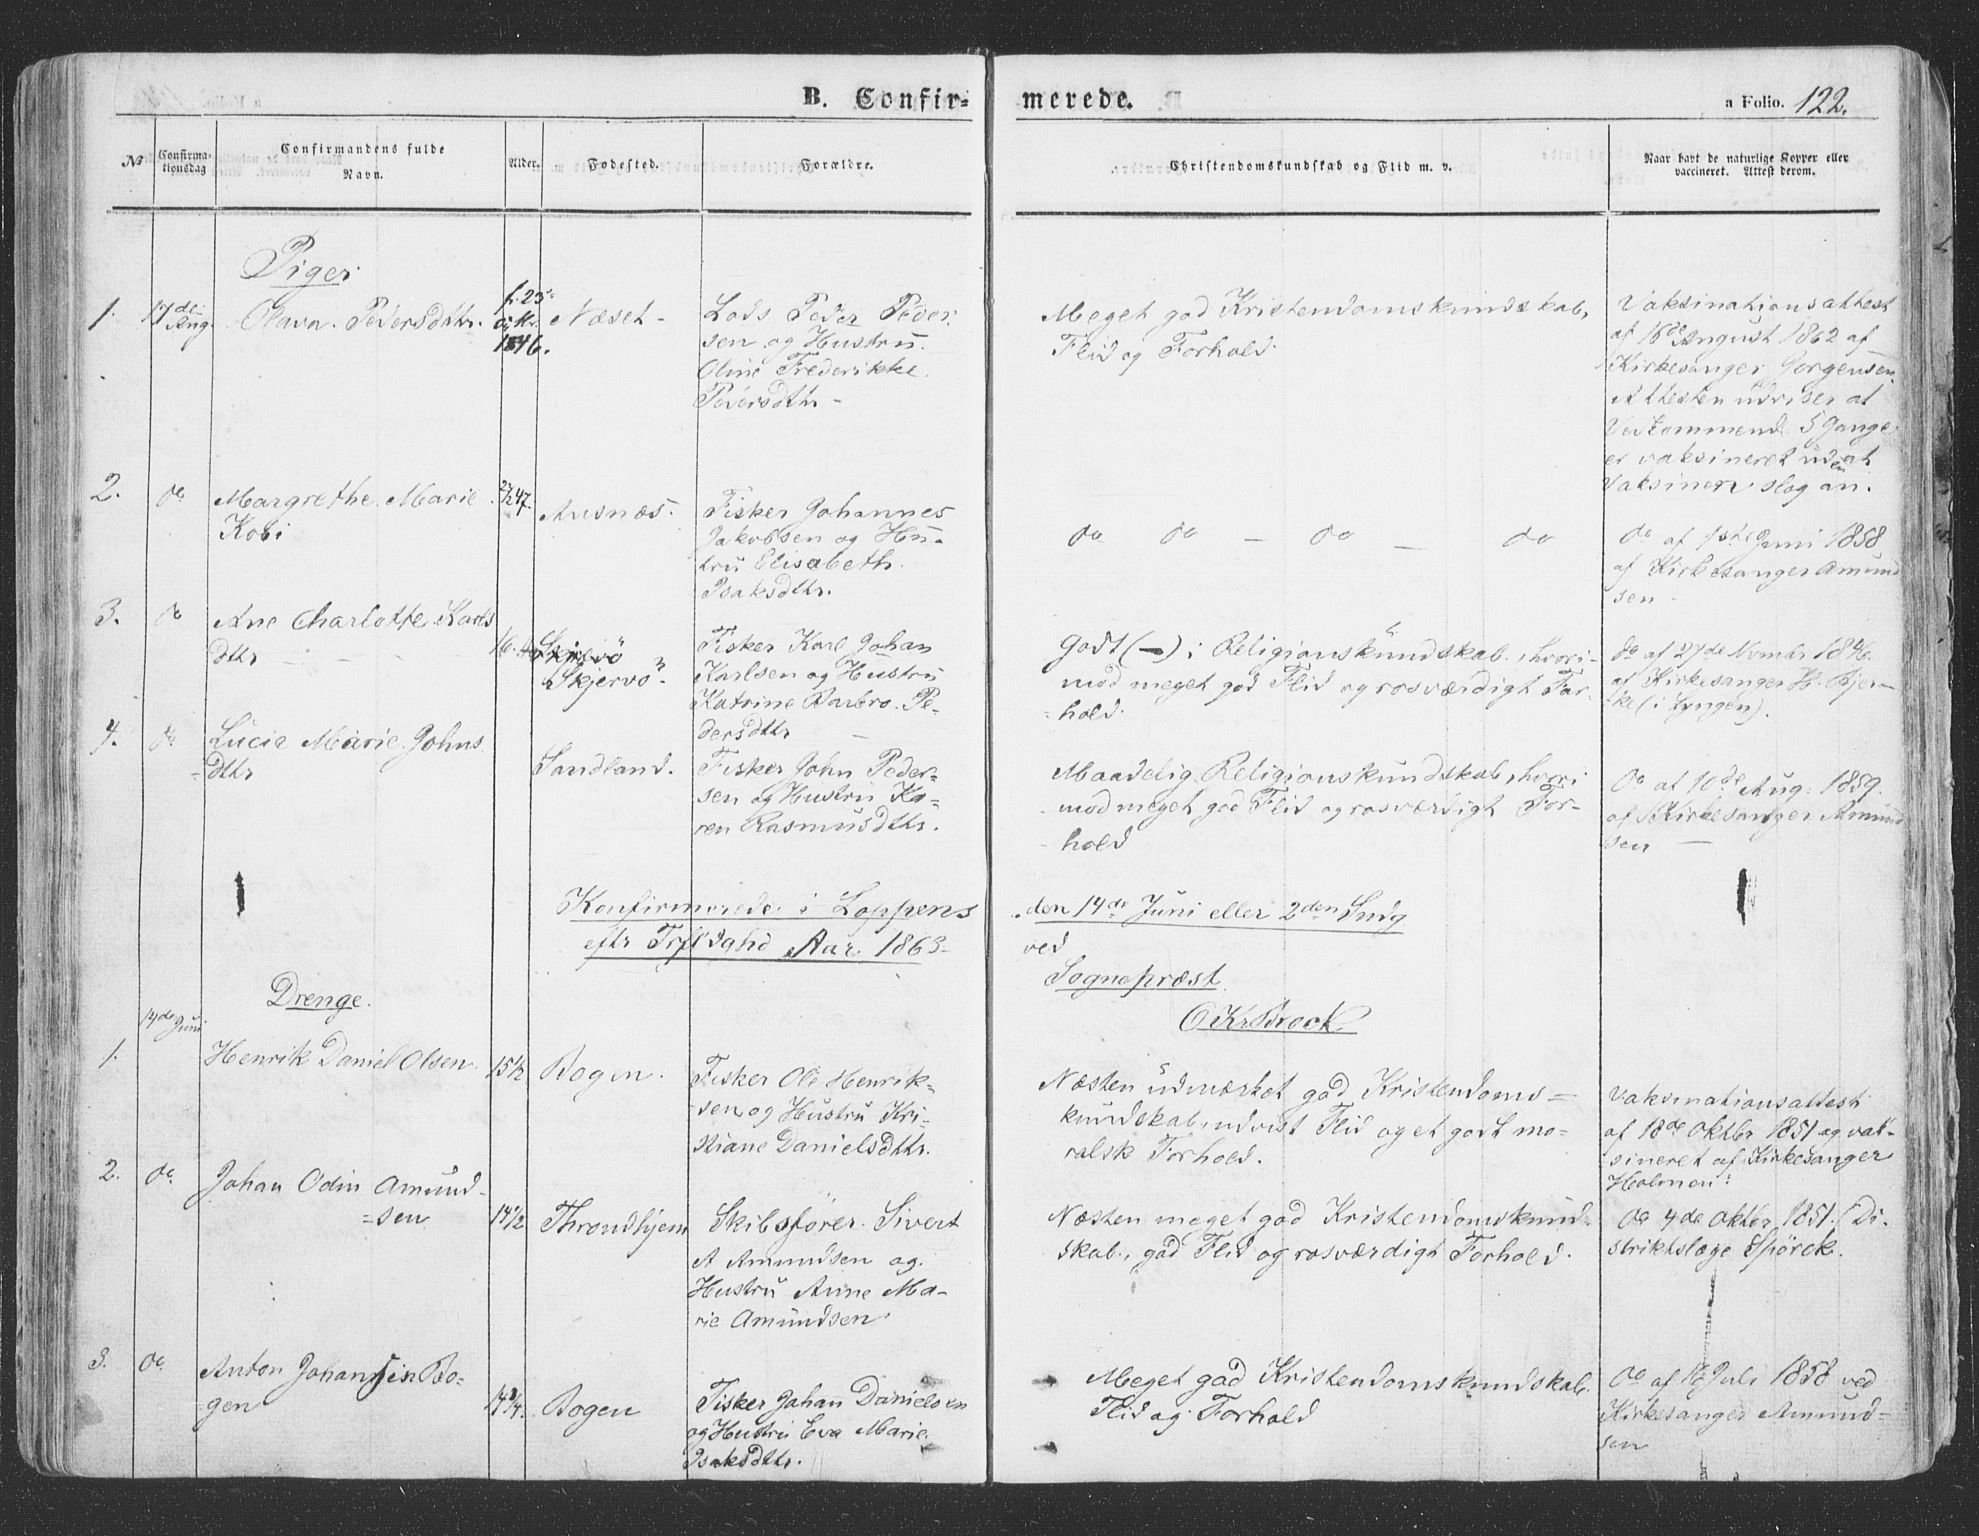 B. Confirmerede.
a Folio. 122.
No
Confirmationsdag
Confirmandens fulde Navn.
Alder.
Fødested.
Forældre.
Christendomskundskab og Flid m. v.
Naar havt de naturlige Kopper eller vaccineret. Attest derom.
Piger
1.
17de Aug.
Olava Pedersdtr.
f. 25
1846.
Næset
Lods Peder Peder
sen og Hustru
Oline Frederikke
Pedersdtr
Meget god Kristendomskundskab,
Flid og Forhold
Vaksinationsattest
af 16de August 1862 af
Kirkesanger Jørgensen
Attesten udviser at
Vedkommend 5 Gange
er vaksineret uden at
Vaksinen slog an.
2.
do
Margrethe Marie
Kobi
47.
Ausnæs
Fisker Johannes
Jakobsen og Hu-
tru Elisabeth
Isaksdtr.
do do - do - do
do af 1ste Juni 1858
af Kirkesanger Amund
sen
3.
do
Ane Charlotte Karls
dtr
16
Skjervö
Fisker Karl Johan
Karlsen og Hustru
Katrine Barbro Pe-
dersdtr
Godt (-) i Religionskundskab, hvori-
mod meget god Flid og rosværdigt For
hold
do af 27de Novmbr 1846
af Kirkesanger H. Bjer-
ke (i Lyngen).
4.
do
Lucia Marie Johns
dtr
Sandland.
Fisker John Peder-
sen og Hustru Ka-
ren Rasmusdtr.
Maadelig Religionskundskab, hvori
mod meget god Flid og rosværdigt For-
hold
do af 10de Aug. 1859.
af Kirkesanger Amund
sen
Konfirmerede i Loppens
den 14de Juni eller 2den Sndg
eftr Trefoldghd Aar 1863
ved
Sogneprest
O Kr Brock
Drenge.
1.
14de Juni
Henrik Daniel Olsen
15 1/2
Bogen
Fisker Ole Henrik-
sen og Hustru Kri-
stiane Danielsdtr.
Næsten udmærket god Kristendoms=
kundskab, udvist Flid og et godt mo-
ralsk Forhold.
Vaksinationsattest
af 18de Oktbr 1851 og vak-
sineret af Kirkesanger
Holmen
2.
do
Johan Odin Amund-
=sen
14 1/2
Throndhjem
Skibsfører Sivert
A Amundsen og
Hustru Anne Ma-
rie Amundsen
Næsten meget god Kristendomskund-
skab, god Flid og rosværdigt Forhold.
do 4de Oktbr 1851. (Di-
striktslæge Spörck.
3.
do
Anton Johansen Bo-
gen
14 3/4
Bogen
Fisker Johan Danielsen
og Hustru Eva Marie
Isaksdtr.
Meget god Kristendomskundskab,
Flid og Forhold
do af Juli 1858 ved
Kirkesanger Amund-
sen